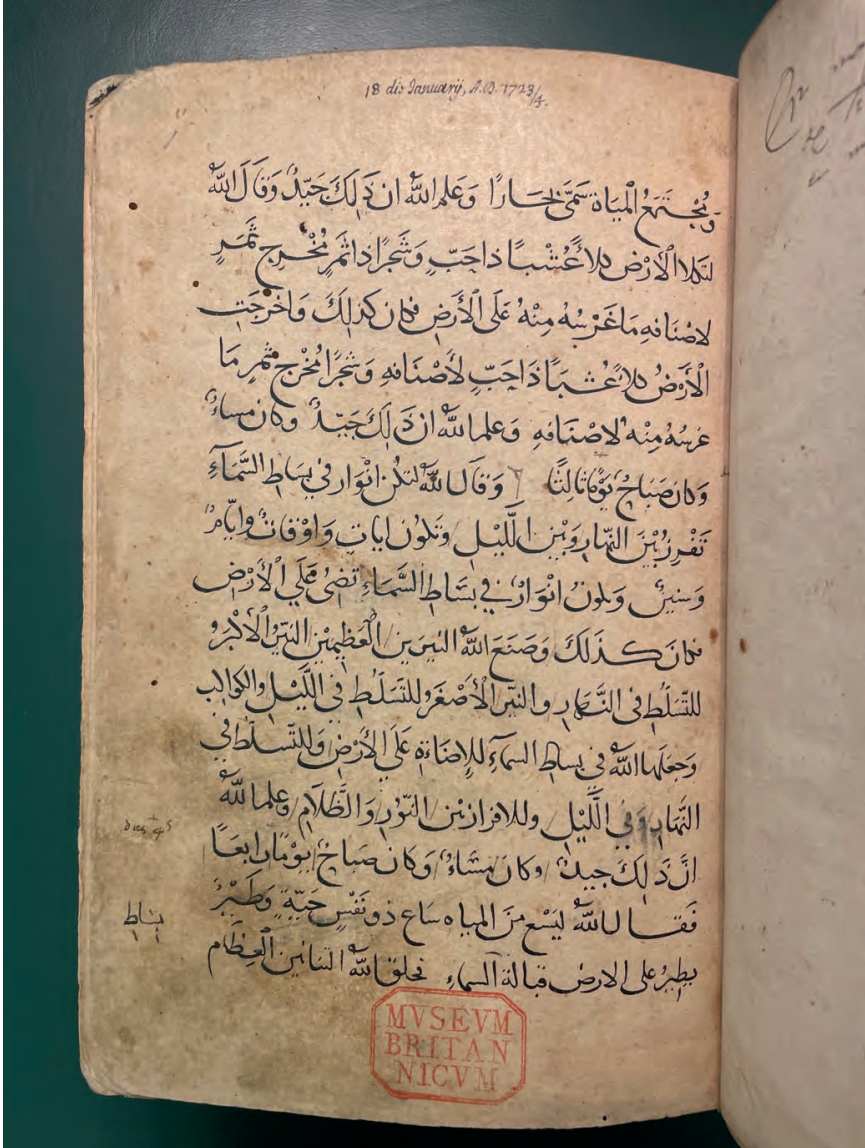 18 die Januarij, A.D. 1723/4.
وَمُجْتَمَعُ الْمِيَاهَ سَمَّىَ بِحَارًا وَعَلِمَ اللهُ ان ذَلِكَ جَيِّدٌ وَقَالَ اللهُ
لتكلا الْأَرْضِ كلاً عُشْبًا ذا حَبٍّ وَشَجَرًا ذا ثَمَرٍ مُخْرِج ثَمَرٍ
لاصْنَافِهِ مَا غَرْسُهُ مِنْهُ عَلَى الْأَرْضِ فكان كذلكَ وَاخْرَجَتِ
الْأَرْضُ كلاً عُشبًا ذَا حَبٍّ لأَصْنَافِهِ وَشَجَرًا مُخْرِج ثمرٍ مَا
غرسُهُ مِنْهُ لاصْنَافِهِ وَعلم اللهُ ان ذَلِكَ جَيِّدٌ وكان مساءٌ
وَكان صَبَاحٌ يَوْمًا ثَالِثًا وَقَالَ اللهُ لتكن انْوَار في بِسَاطِ السَّمَآءِ
تَفْرِزُ بَيْنَ النَّهَارِ وَبَيْنَ اللَّيْلِ وَتكونُ ايَاتٍ وَاوْقَاتٌ وايَّامٌ
وَسنينٌ وَيكونُ انْوَارٌ في بسَاطِ السَّمَاءِ تضىُ عَلَي الْأَرْضِ
فكانَ كَذَلكَ وَصَنَعَ اللهُ النيرَينِ الْعَظِيمَيْنِ النيّرُ الْأَكْبَرُ
للتَّسَلُّطِ فى النَّهَارِ والنيّر الْأَصْغَرُ للتَّسَلُّطِ فى اللَّيْلِ والكواكب
وَجَعَلَهَا اللهُ في بساط السمآءِ لِلإضَاءَةِ عَلَي الْأَرْضِ وَلِلتَّسَلُّطِ في
النَّهَارِ وَفِي اللَّيْلِ وللافراز بَيْنَ النُّوْرِ وَالظَّلَامِ وعلم اللهُ
انَّ ذَلِكَ جيدٌ وكانَ مَسَاءٌ وَكَانَ صَبَاحٌ يوْمًا رابعًا
فَقَال اللهُ ليَسْع مِنَ المياه سَاعٍ ذو نَفْسٍ حَيَّةٍ وَطَيْرٌ
بساط
يطيرُ على الارض قبالة السماءِ فخلق اللهُ التنانين الْعِظَام
MVSEVM
BRITAN
NICVM